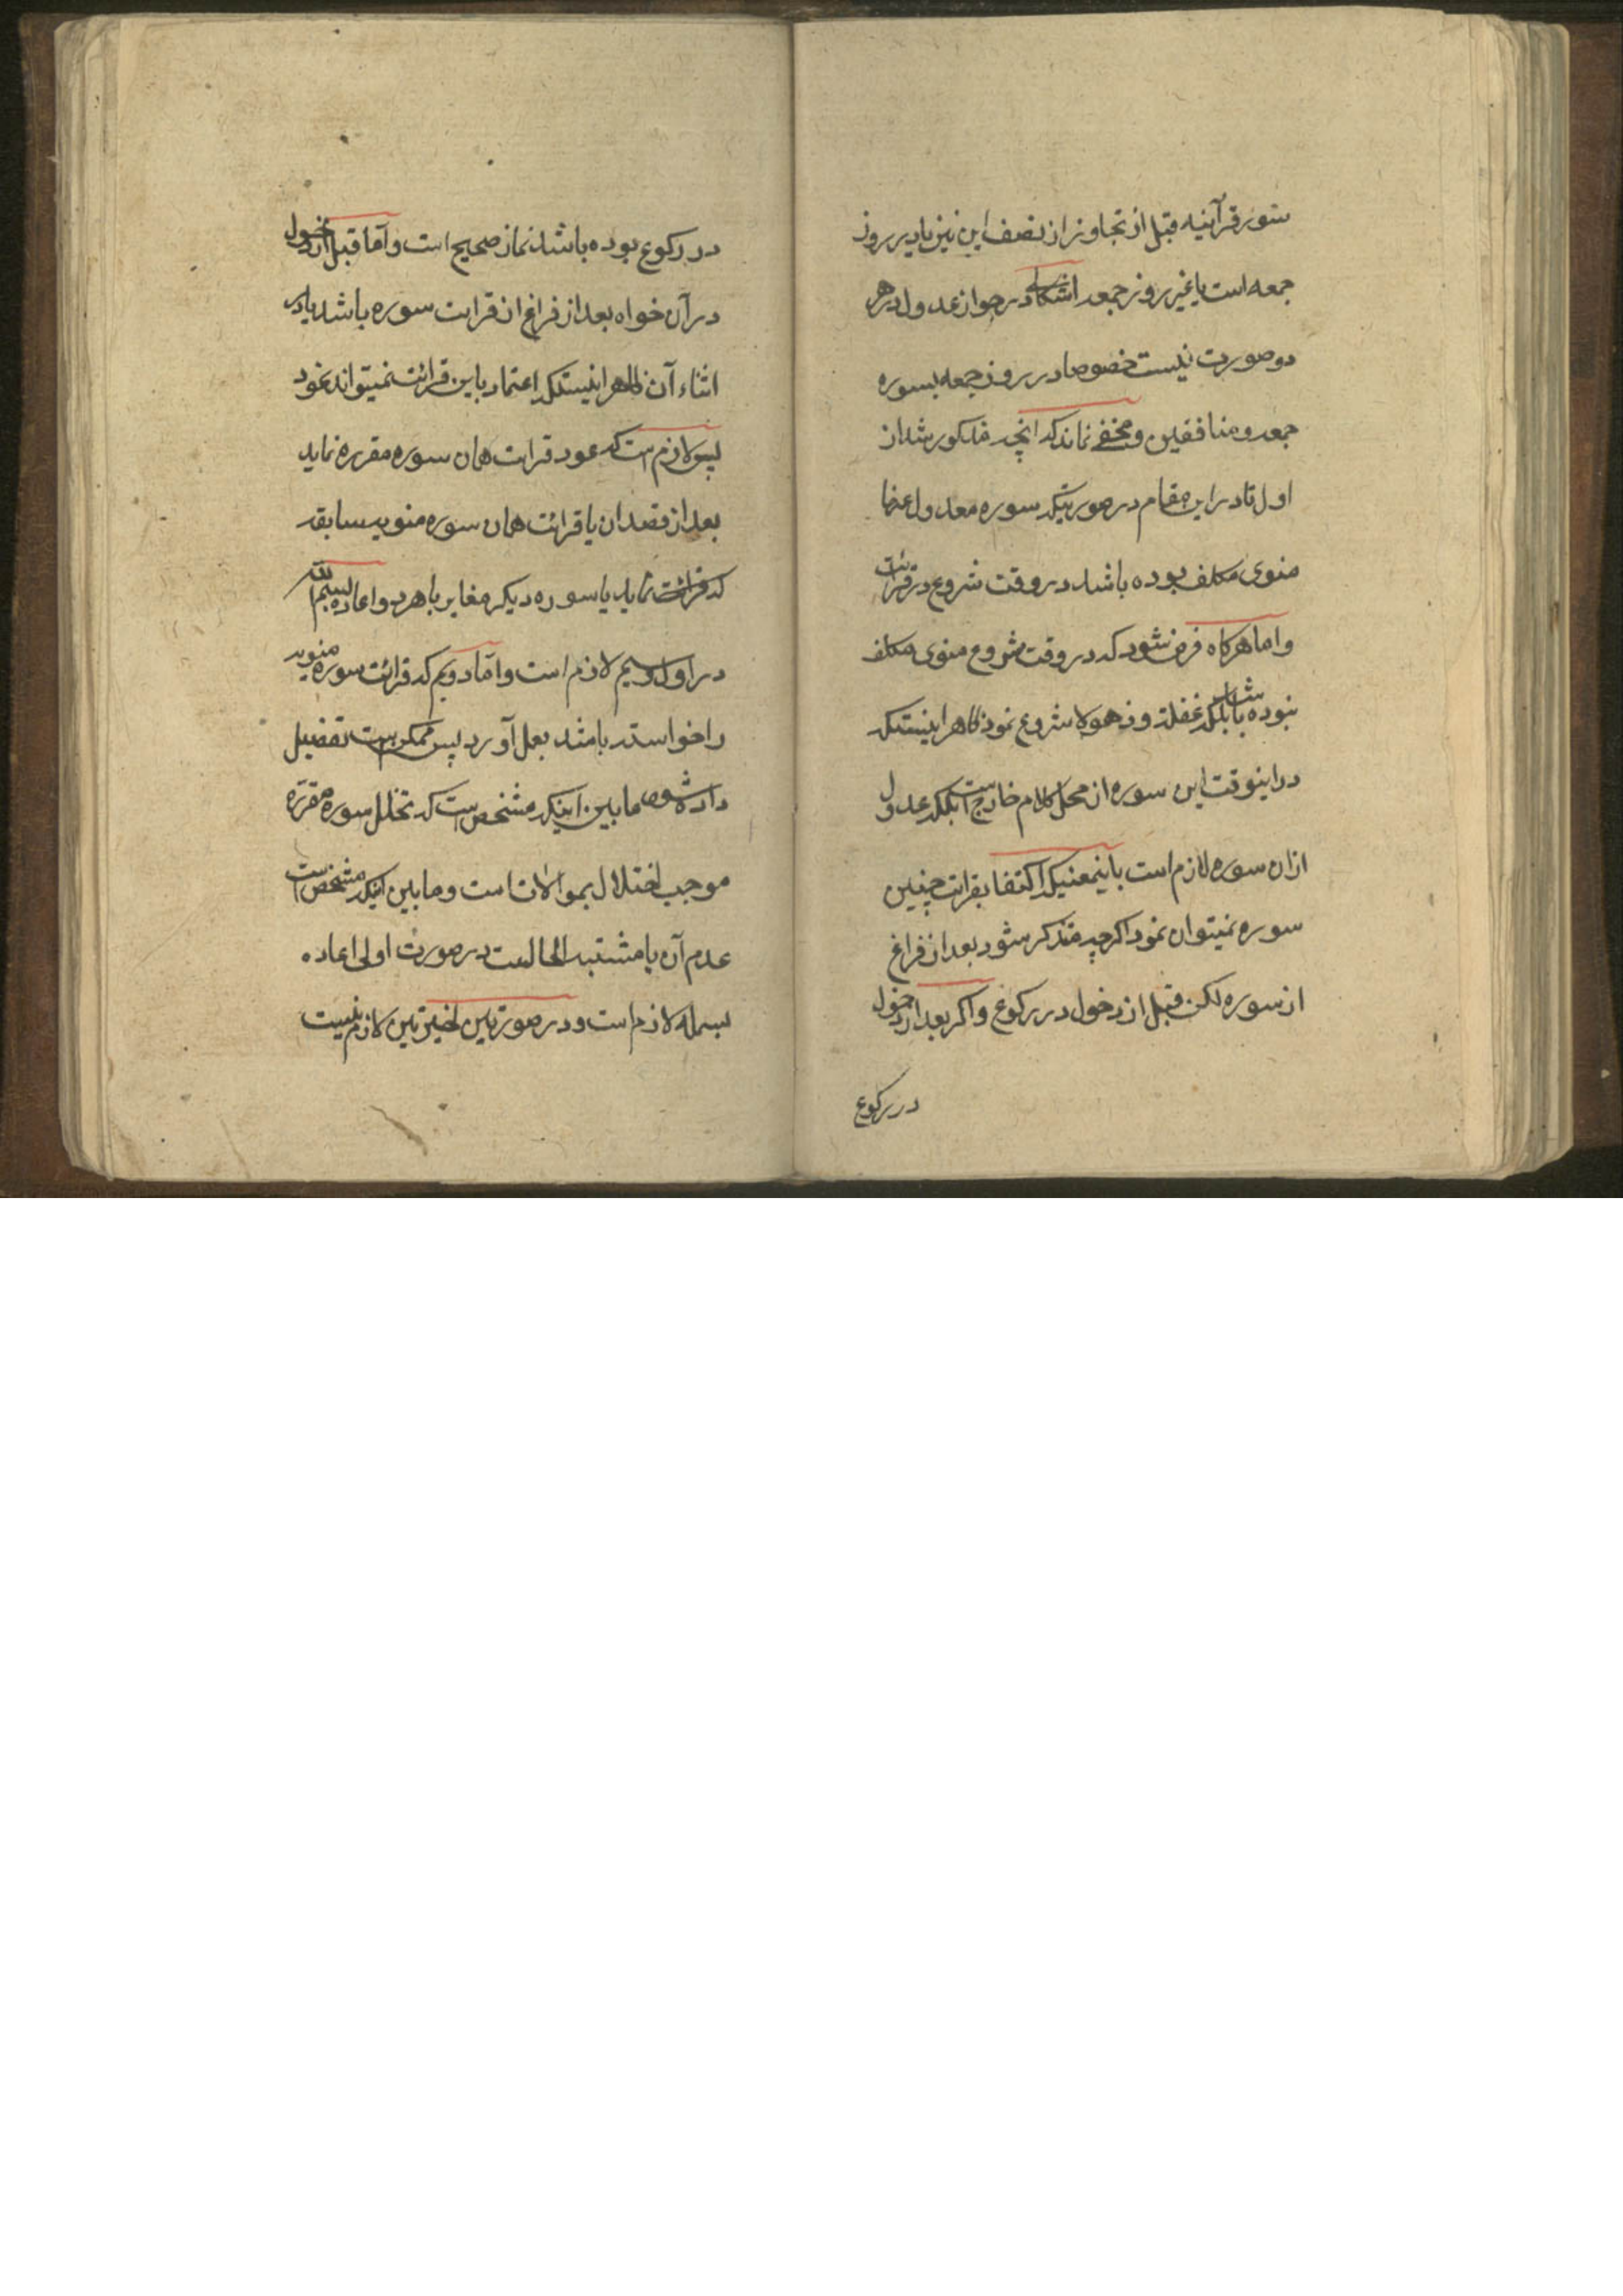 سور قرآنیه قبل از تجاوز از نصف این نیز یا در روز
جمعه است یا غیر روز جمعه اشکالی در جواز عدول در هر
دو صورت نیست خصوصا در روز جمعه بسوره
جمعه و منافقین و مخفی نماند که آنچه مذکور شد از
اول تا در این مقام در صورتیکه سوره معدول عنها
منوی مکلف بوده باشد در وقت شروع در قرائت
و اما هرگاه فرض شود که در وقت شروع منوی مکلف
نبوده باشد بلکه غفلة و ذهولا شروع نمود ظاهر اینستکه
در اینوقت این سوره از محل کلام خارج است بلکه عدول
ازان سوره لازم است باینمعنیکه اکتفا بقرائت چنین
سوره نمیتوان نمود اکرچه متذکر شود بعد از فراغ
از سوره لکن قبل از دخول در رکوع و اکر بعد از دخول
در رکوع
در رکوع بوده باشد نماز صحیح است و اما قبل از دخول
در آن خواه بعد از فراغ از قرائت سوره باشد یا در
اثناء آن ظاهر اینستکه اعتماد باین قرائت نمیتواند نمود
پس لازم است که عود قرائت همان سوره مقرره نماید
بعد از قصد ان یا قرائت همان سوره منویه سابقه
که قرائت نماید یا سوره دیکر مغایر با هر دو و اعاده بسم الله
در اول و سیم لازم است و اما دویم که قرائت سوره منویه
را خواسته باشد بعمل آورد پس ممکن است تفصیل
داده شود ما بین اینکه مشخص است که تخلل سوره مقرره
موجب اختلال بموالات است و ما بین اینکه مشخص است
عدم آن یا مشتبه الحال است در صورت اولی اعاده
بسمله لازم است و در صورتین اخیرتین لازم نیست